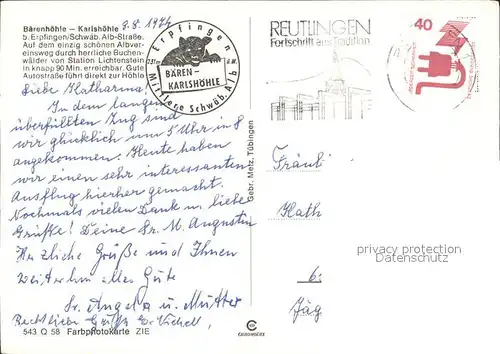 Bärenhöhle – Karlshöhle
b. Erpfingen/Schwäb. Alb-Straße.
Auf dem einzig schönen Albver-
einsweg durch herrliche Buchen-
wälder von Station Lichtenstein
in knapp 90 Min. erreichbar. Gute
Autostraße führt direkt zur Höhle
9.8.1974
Erpfingen
BÄREN-
KARLSHÖHLE
Mittlere Schwäb. Alb
REUTLINGEN
Fortschritt aus Tradition
40
Liebe Katharina!
In dem langen
überfüllten Zug sind
wir glücklich um 5 Uhr in
angekommen. Heute haben
wir einen sehr interessanten
Ausflug hierher gemacht.
Nochmals vielen Dank u. liebe
Grüße! Deine Sr. M. Augustin
Herzliche Grüße und Ihnen
weiterhin alles Gute
Sr. Angela u. Mutter
Recht liebe Grüße
Gebr. Metz, Tübingen
Fräuli
Kath
6
Jäg
privacy protection
ansichtskartenwelt.de
543 Q 58 Farbphotokarte ZIE